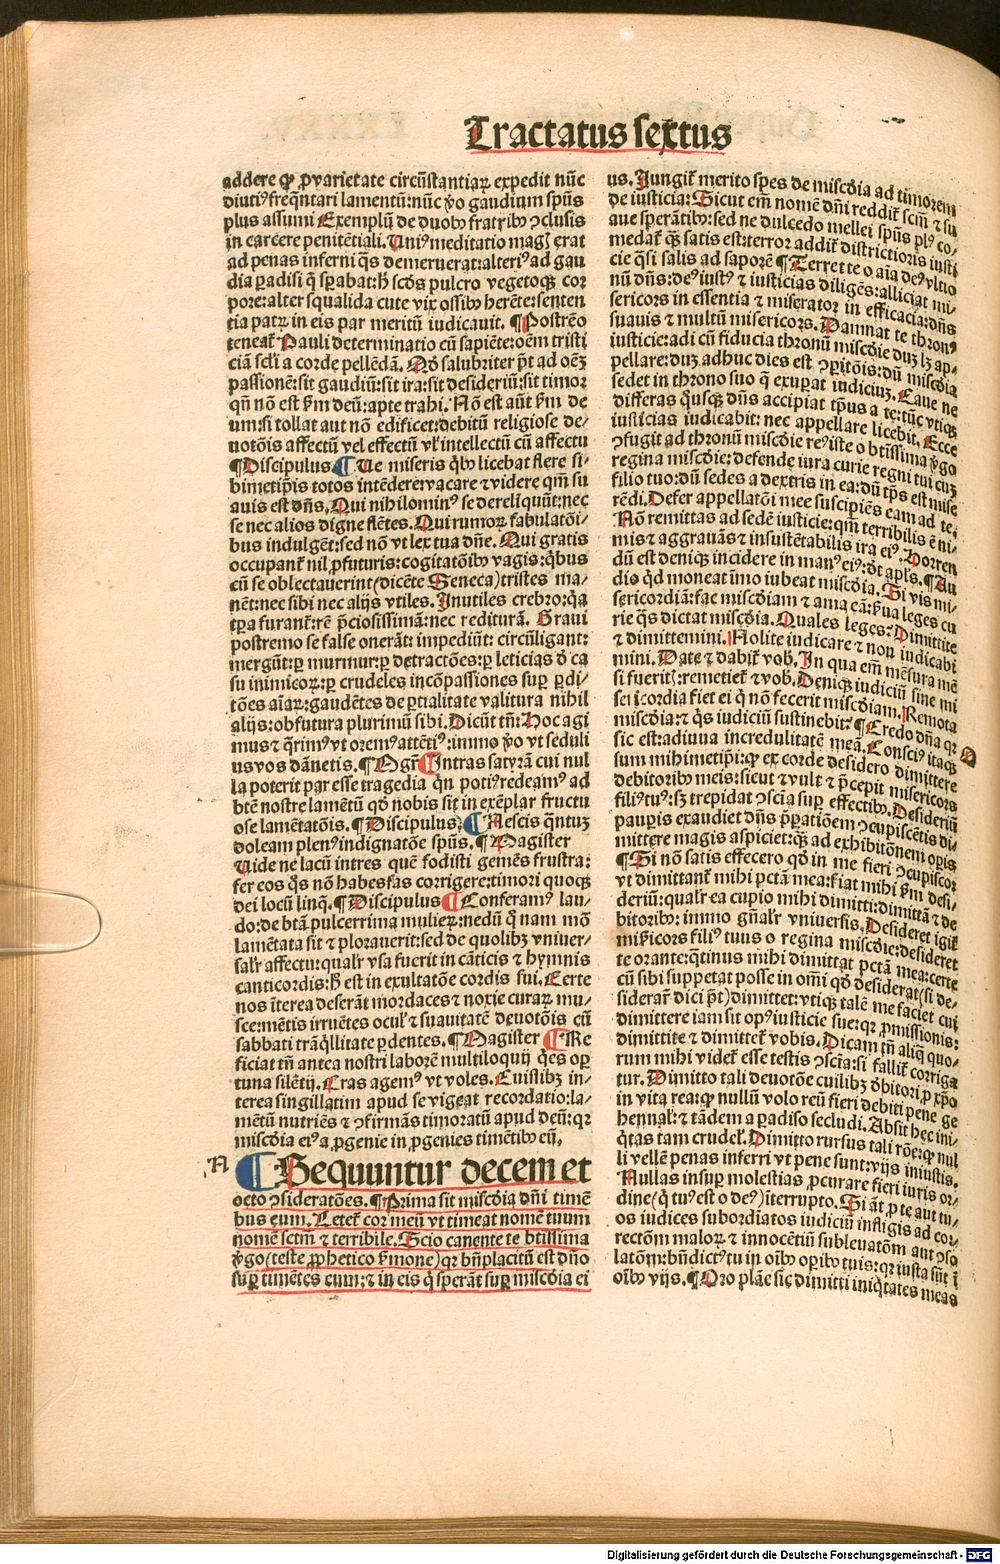 Tractatus sextus
addere ꝙ ꝓ varietate circūstantiaꝝ expedit nūc
diutiꝰ freq̄ntari lamentū: nūc ꝟo gaudium spūs
plus assumi Exemplū de duobꝫ fratribꝫ ꝯclusis
in carcere penitētiali. Uniꝰ meditatio mag erat
ad penas inferni q̄s demeruerat: alteriꝰ ad gau
dia ꝑadisi q̄ sꝑabat: h̄ scōs pulcro vegetoqꝫ cor
pore: alter squalida cute vix ossibꝫ herēte: senten
tia patꝝ in eis par meritū iudicauit. ¶ Postrēo
teneat̄ Pauli determinatio cū sapiēte: oēm tristi
ciā scl̄i a corde pellēdā. salubriter p̄t ad oēꝫ
passionē: sit gaudiū: sit ira: sit desideriū: sit timor
qn̄ nō est s̄m deū: apte trahi. Nō est aūt s̄m de
um: si tollat aut nō edificet: debitū religiose de⸗
uotōis affectū vel effectū vl̓ intellectū cū affectu
¶ Discipulus. ¶ Ue miseris q̄bꝫ licebat flere si⸗
bimetip̄is totos intēdere: vacare ⁊ videre qm̄ su
auis est dn̄s. Qui nihilominꝰ se dereliquūt: nec
se nec alios digne flētes. Qui rumoꝝ fabulatōi⸗
bus indulgēt: sed nō vt lex tua dn̄e. Qui gratis
occupant̄ nil ꝓfuturis: cogitatōibꝫ vagis: q̄bus
cū se oblectauerint (dicēte Seneca) tristes ma⸗
nēt: nec sibi nec alijs vtiles. Inutiles crebro: q̄a
tꝑa furant̄: rē p̄ciosissimā: nec rediturā. Graui
postremo se false onerāt: impediūt: circūligant:
mergūt: ꝑ murmur: ꝑ detractōes: ꝑ leticias d̄ ca
su inimicoꝝ: ꝑ crudeles incōpassiones suꝑ ꝑdi⸗
tōes aīaꝝ: gaudētes de ꝑtialitate valitura nihil
alijs: obfutura plurimū sibi. Dicūt tn̄: Hoc agi
mus ⁊ q̄rimꝰ vt oremꝰ attētiꝰ: immo ꝟo vt seduli
us vos dānetis. ¶ Mgr̄ ¶ Intras satyrā cui nul
la poterit par esse tragedia q̄n potiꝰ redeamꝰ ad
btē nostre lamētū qd̄ nobis sit in exēplar fructu
ose lamētatōis. ¶ Discipulus. ¶ Nescis q̄ntuꝫ
doleam plenꝰ indignatōe spūs. ¶ Magister
Uide ne lacū intres quē fodisti gemēs frustra:
fer eos q̄s nō habes fas corrigere: timori quoqꝫ
dei locū linq̄. ¶ Discipulus ¶ Conferamꝰ lau⸗
do: de btā pulcerrima mulieꝝ: nedū q̄ nam mō
lamētata sit ⁊ plorauerit: sed de quolibꝫ vniuer⸗
sal̓r affectu: qual̓r vsa fuerit in cāticis ⁊ hymnis
canticordis: h̄ est in exultatōe cordis sui. Certe
nos īterea deserāt mordaces ⁊ noxie curaꝝ mu⸗
sce: mētis irruētes ocul̓ ⁊ suauitatē deuotōis cū
sabbati trāq̄llitate ꝑdentes. ¶ Magister ¶ Re
ficiat tn̄ antea nostri laborē multiloquij q̄es opꝛ
tuna silētij. Cras agemꝰ vt voles. Cuistibꝫ in⸗
terea singillatim apud se vigeat recordatio: la⸗
mētū nutriēs ⁊ ꝯfirmās timoratū apud deū: qꝛ
mīscd̄ia eiꝰ a ꝓgenie in ꝓgenies timētibꝫ eū.
A
¶ Sequuntur decem et
octo ꝯsideratōes. ¶ Prima sit misc̄dia dn̄i timē
bus eum. Letet̄ cor meū vt timeat nomē tuum
nomē sctm̄ ⁊ terribile. Scio canente te btīssima
ꝟgo (teste ꝓphetico s̄mone) qꝛ bn̄placitū est dn̄o
suꝑ timētes eum: ⁊ in eis q̄ sperāt suꝑ misc̄dia ei
us. Jungit̄ merito spes de misc̄dia ad timorem
de iusticia: Sicut em̄ nomē dn̄i reddit̄ scm̄ ⁊ su
aue sperātibꝫ: sed ne dulcedo mellei spūs plꝰ co⸗
medat̄ qꝫ satis est: terror addit̄ districtioris iusti
cie q̄si salis ad saporē ¶ Terret te o aīa deꝰ vltio
nū dn̄s: deꝰ iustꝰ ⁊ iusticias diligēs: alliciat mi⸗
sericors in essentia ⁊ miserator in efficacia: dn̄s
suauis ⁊ multū misericors. Damnat te thronꝰ
iusticie: adi cū fiducia thronū misc̄die duꝫ lꝫ ap⸗
pellare: duꝫ adhuc dies est ꝓpitōis: dū misc̄dia
sedet in throno suo q̄ exuꝑat iudiciuꝫ. Caue ne
differas q̄usqꝫ dn̄s accipiat tp̄us a te: tūc vtiqꝫ
iusticias iudicabit: nec appellare licebit. Ecce
ꝯfugit ad thronū misc̄die reꝰ iste o btīssima ꝟgo
regina misc̄die: defende iura curie regni tui cuꝫ
filio tuo: dū sedes a dextris in ea: dū tp̄s est mise
rēdi. Defer appellatōi mee suscipiēs eam ad te.
Nō remittas ad sedē iusticie: qm̄ terribilis ē ni⸗
mis ⁊ aggrauās ⁊ insustētabilis ira eiꝰ. Horren
dū est deniqꝫ incidere in manꝰ eiꝰ: dt apl̄s. ¶ Au
dio q̄d moneat īmo iubeat misc̄dia. Si vis mi⸗
sericordiā: fac misc̄diam ⁊ ama eā: s̄ua leges cu
rie q̄s dictat misc̄dia. Quales leges? Dimittite
⁊ dimittemini. Nolite iudicare ⁊ non iudicabi
mini. Date ⁊ dabit̄ vob̄. In qua em̄ mēsura mē
si fueritꝫ: remetiet̄ ⁊ vob̄. Deniqꝫ iudiciū sine mi
sericordia fiet ei q̄ nō fecerit misc̄diam. Remota
misc̄dia: ⁊ q̄s iudiciū sustinebit? ¶ Credo dn̄a qꝛ
sic est: adiuua incredulitatē meā. Consciꝰ itaqꝫ
sum mihimetip̄i: ꝙ ex corde desidero dimittere
debitoribꝫ meis: sicut ⁊ vult ⁊ p̄cepit misericors
filiꝰ tuꝰ: sꝫ trepidat ꝯscia suꝑ effectibꝫ. Desideriū
pauꝑis exaudiet dn̄s p̄ꝑatiōem ꝯcupiscētis di⸗
mittere magis aspiciet: qꝫ ad exhibitōnem opis
¶ Si nō satis effecero qd̄ in me fieri ꝯcupiscor
vt dimittant̄ mihi pctā mea: fiat mihi s̄m desi⸗
deriū: qual̓r ea cupio mihi dimitti: dimittā ⁊ de
bitoribꝫ: immo gn̄al̓r vniuersis. Desideret igit̄
mis̄icors filiꝰ tuus o regina misc̄die: desideret
te orante: q̄tinus mihi dimittat pctā mea: certe
cū sibi suppetat posse in om̄i qd̄ desiderat (si de⸗
siderar̄ dici p̄t) dimittet: vtiqꝫ talē me faciet cui
dimittere iam sit opꝰ iusticie sue: qꝛ ꝓmissionis:
dimittite ⁊ dimittet̄ vobis. Dicam tn̄ aliq̄ quo⸗
rum mihi videt̄ esse testis ꝯscīa: si fallit̄ corriga
tur. Dimitto tali deuotōe cuilibꝫ d̄bitori ꝑ xp̄o
in vita rea: ꝙ nullū volo reū fieri debiti pene ge
hennal̓: ⁊ tādem a ꝑadiso secludi. Absit hec ini⸗
q̄tas tam crudel̓. Dimitto rursus tali rōe: ꝙ nul
li vellē penas inferri vt pene sunt: vijs iniustis.
Nullas insuꝑ molestias ꝓcurare fieri iuris or⸗
dine (q̄ tuꝰ est o deꝰ) īterrupto. Si āt ꝓ te aut tu⸗
os iudices subordīatos iudiciū infligis ad cor⸗
rectōm maloꝝ ⁊ innocētiū subleuatōm aut ꝯso
latōm: bn̄dictꝰ tu in oībꝫ opibꝫ tuis: qꝛ iusta sūt ī
oībꝫ vijs. ¶ Oro plāe sic dimitti iniq̄tates meas
Digitalisierung gefördert durch die Deutsche Forschungsgemeinschaft - DFG